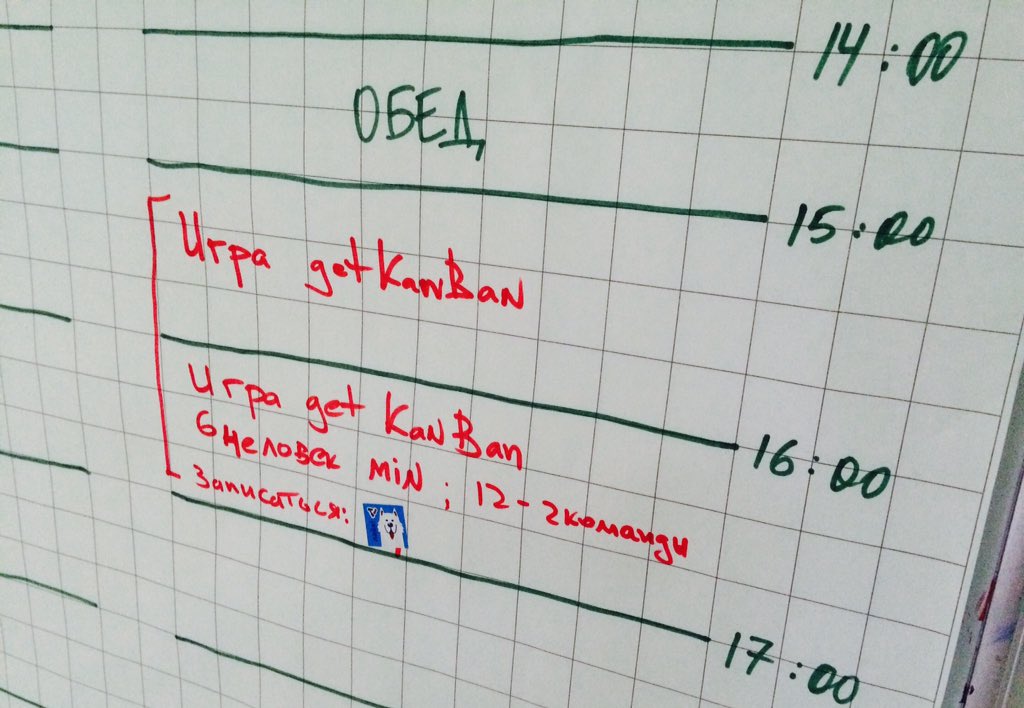 14:00
ОБЕД
15:00
Игра getKanBan
16:00
Игра get KanBan
6 человек min ; 12 - 2 команды
Записаться:
17:00